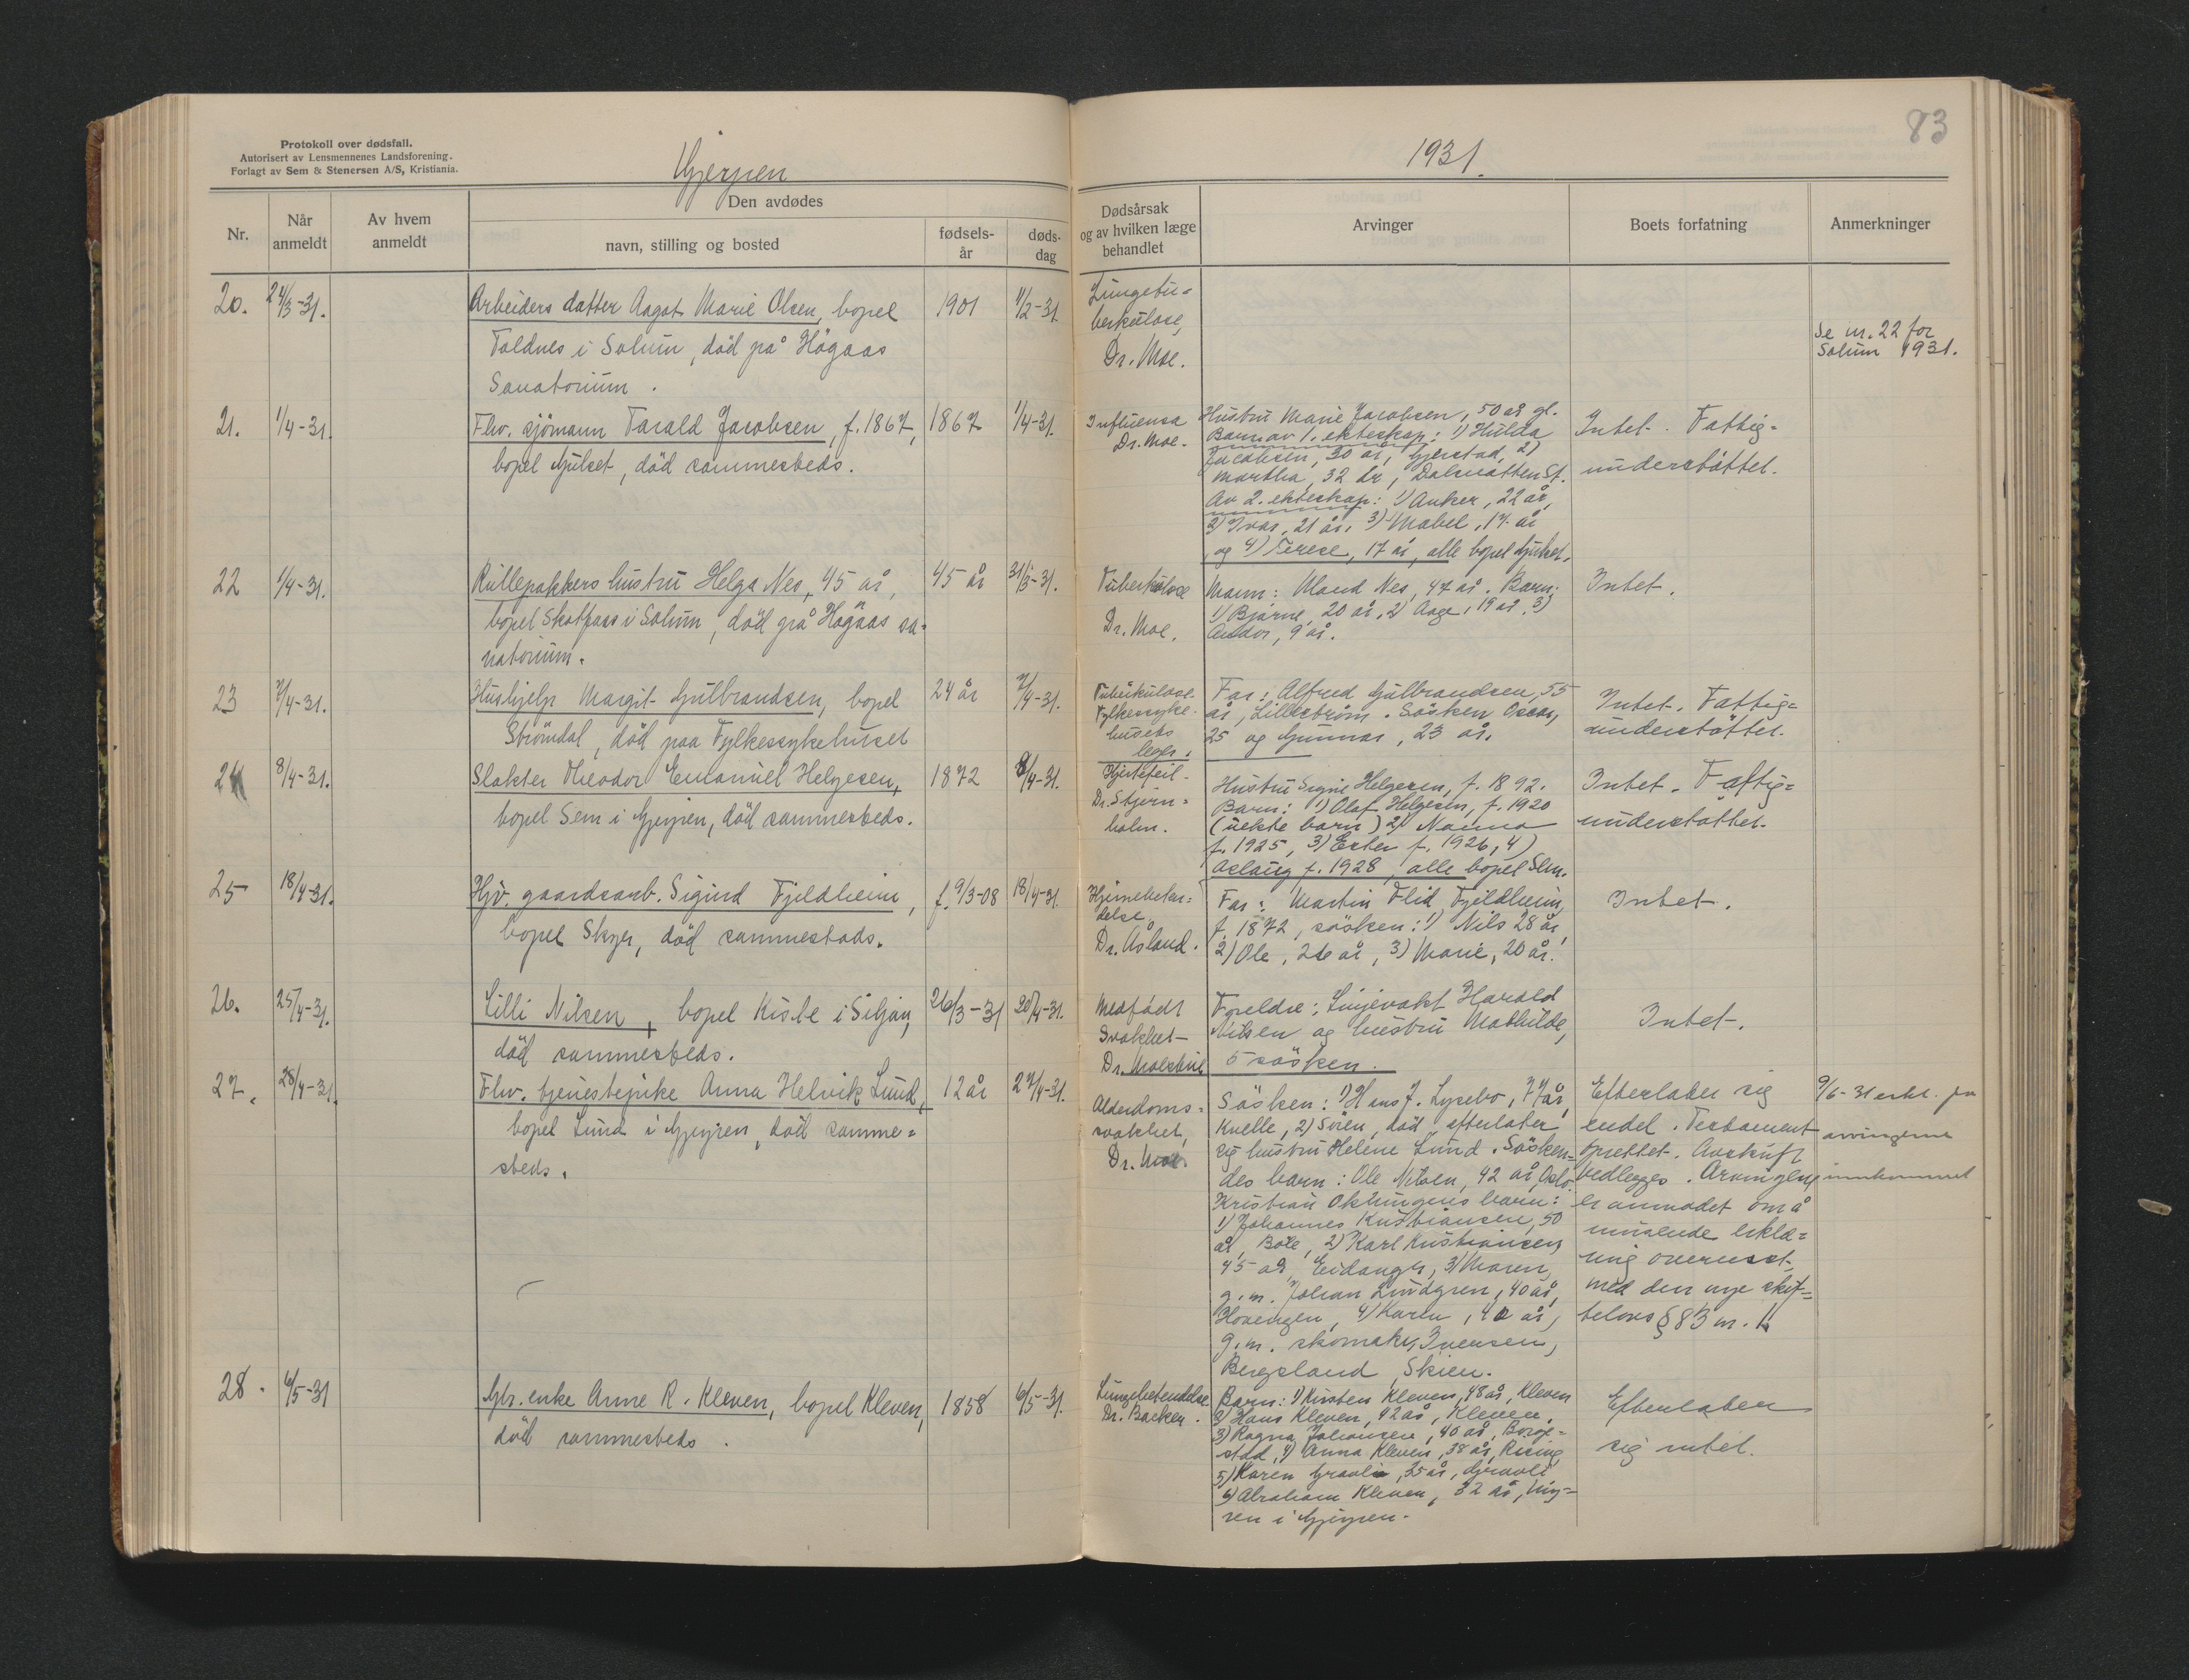 Protokoll over dødsfall.
Autorisert av Lensmennenes Landsforening.
Forlagt av Sem & Stenersen A/S, Kristiania.
Gjerpen
1931.
83
Nr.
Når
anmeldt
Av hvem
anmeldt
Den avdødes
navn, stilling og bosted
fødsels-
år
døds-
dag
Dødsårsak
og av hvilken læge
behandlet
Arvinger
Boets forfatning
Anmerkninger
20. 24/3-31. Arbeiders datter Aagot Marie Olsen, bopel 1901 1/2-31.
Toldnes i Solum, död på Högaas
Sanatorium.
Lungetu-
berkulose,
Dr. Moe.
Se nr. 22 for
Solum 1931.
21. 1/4-31. Fhv. sjömann Tarald Jacobsen, f. 1867, 1867 1/4-31.
bopel Gulset, död sammesteds.
Influensa
Dr. Moe.
Hustru Marie Jacobsen, 50 år gl.
Barn av 1. ekteskap: 1) Hulda
Jacobsen, 30 år, Gjerstad, 2)
Martha, 32 år, St.
Av 2. ekteskap: 1) Anker, 22 år,
2) Ivar, 21 år, 3) Mabel, 17 år
og 4) Terese, 17 år, alle bopel Gulset.
Intet. Fattig-
understöttet.
22 1/4-31. Rullepakkers hustru Helga Nes, 45 år, 45 år 31/3-31.
bopel Skotfoss i Solum, död på Högaas sa-
natorium.
Tuberkulose
Dr. Moe.
Mann: Nes, 47 år. Barn:
1) Bjarne, 20 år, 2) Aage, 19 år, 3)
Andor, 9 år.
Intet.
23 7/4-31. Hushjelp Margit Gulbrandsen, bopel 24 år 7/4-31.
Strömdal, död paa Fylkessykehuset
Tuberkulose.
Fylkessyke-
husets
leger.
Far: Alfred Gulbrandsen, 55
år, Lilleström. Sösken Oscar,
25 og Gunnar, 23 år.
Intet. Fattig-
understöttet.
24 8/4-31. Slakter Theodor Emanuel Helgesen, 1872 8/4-31.
bopel Sem i Gjerpen, död sammesteds.
Hjertefeil.
Dr. Stjern-
holm.
Hustru Signe Helgesen, f. 1892.
Barn: 1) Olaf Helgesen, f. 1920
(uekte barn) 2) Nanna
f. 1925, 3) Ester f. 1926, 4)
Aslaug f. 1928, alle bopel Sem.
Intet. Fattig-
understöttet.
25 18/4-31. Hjv. gaardsarb. Sigurd Fjeldheim, f. 9/3-08 18/4-31
bopel död sammesteds.
Hjernebeten-
delse,
Dr. Åsland.
Far: Martin Flid Fjeldheim,
f. 1872, sösken: 1) Nils 28 år,
2) Ole, 26 år, 3) Marie, 20 år.
Intet.
26. 25/4-31. Lilli Nilsen, bopel Kiste i Siljan, 26/3-31 20/4-31.
död sammesteds.
Medfödt
Svakhet
Dr.
Foreldre: Linjevakt Harald
Nilsen og hustru Mathilde,
5 sösken.
Intet.
27. 28/4-31. Fhv. tjenestepike Anna Helvik Lund, 12 år 27/4-31.
bopel Lund i Gjerpen, död samme-
steds.
Alderdoms-
svakhet,
Dr. Moe.
Sösken: 1) Hans J. Lysebo, 77 år,
Kvelle, 2) Sören, död, efterlater
sig hustru Helene Lund. Sösken-
des barn: Ole Nilsen, 42 år, Oslo.
Kristian barn:
1) Johannes Kristiansen, 50
år, Böle, 2) Karl Kristiansen,
45 år, Eidanger, 3) Maren,
g.m. Johan Lindgren, 40 år,
Hovengen, 4) Karen, 40 år,
g.m. skomaker Iversen,
Bergsland, Skien.
Efterlater sig
endel. Testament
oprettet. Avskrift
vedlegges. Arvingene
er anmodet om å
innsende erklæ-
ring overensst.
med den nye skif-
telovs § 83 nr. 4
9/6-31 erkl. fra
arvingerne
innkommet
28. 6/5-31 Gbr. enke Anne R. Kleven, bopel Kleven, 1858 6/5-31.
död sammesteds.
Lungebetendelse
Dr. Backer.
Barn: 1) Kirsten Kleven, 48 år, Kleven
2) Hans Kleven, 42 år, Kleven,
3) Ragna Johansen, 40 år, Borge-
stad, 4) Anna Kleven, 38 år, Rising
5) Karen Graali, 35 år,
6) Abraham Kleven, 32 år,
ren i Gjerpen.
Efterlater
sig intet.